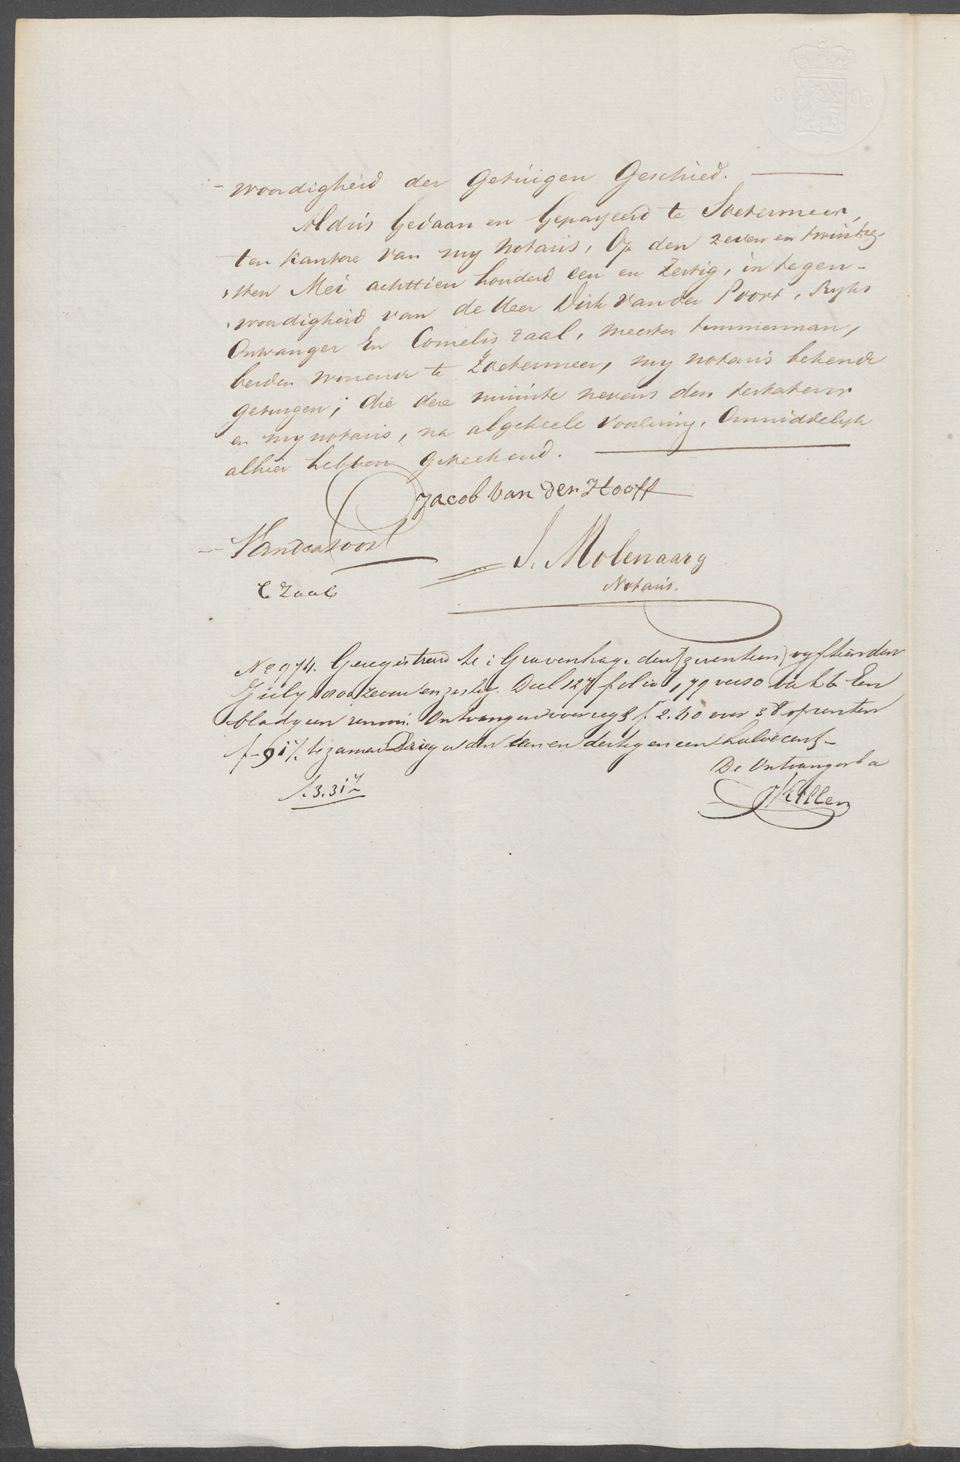 woordigheid der getuigen Geschied.
Aldus Gedaan en Gepasseerd te Soetermeer,
ten kantore van my notaris, Op den zeven en twintig-
sten Mei achttien honderd een en Zestig, in tegen-
woordigheid van de Heer Dirk Vander Poort, Ryks
Ontvanger En Cornelis Zaal, meester timmerman,
beiden wonende te Zoetermeer, my notaris bekende
getuigen; die deze minute nevens den testateur
en my notaris, na algeheele Voorlezing, Onmiddelyk
alhier hebben geteekend.
Jacob Van den Hooff
Vanderpoort
J. Molenaar
C Zaal
Notaris.
No 974. Geregistreerd te 's Gravenhage den (zeventien) vyftienden
July 1800 zeven en zestig. Deel 127 folio 179 verso vak 6 Een
blad geen renvooi. Ontvangen voor regt f 2.40 voor 38 opcenten
f -91½ te zamen Drie gulden een en dertig en een halve cent -
De Ontvanger
f. 3.31½